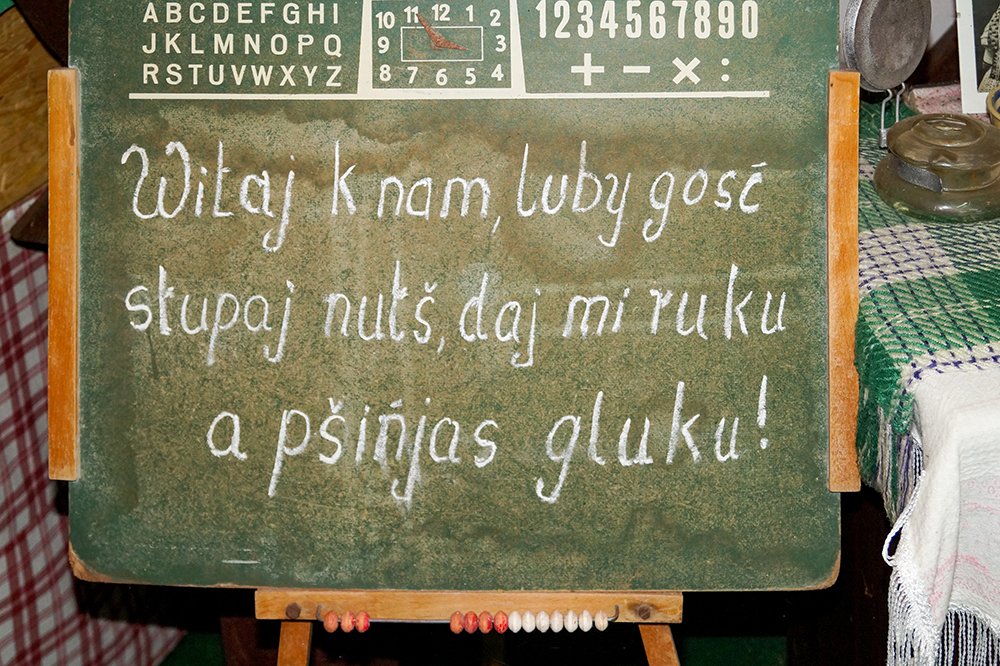 ABCDEFGHI
JKLMNOPQ
RSTUVWXYZ
10 11 12 1 2
9 3
8 7 6 5 4
1234567890
+ − × :
Witaj k nam, luby gosć
stupaj nutś, daj mi ruku
a pśińjas gluku!